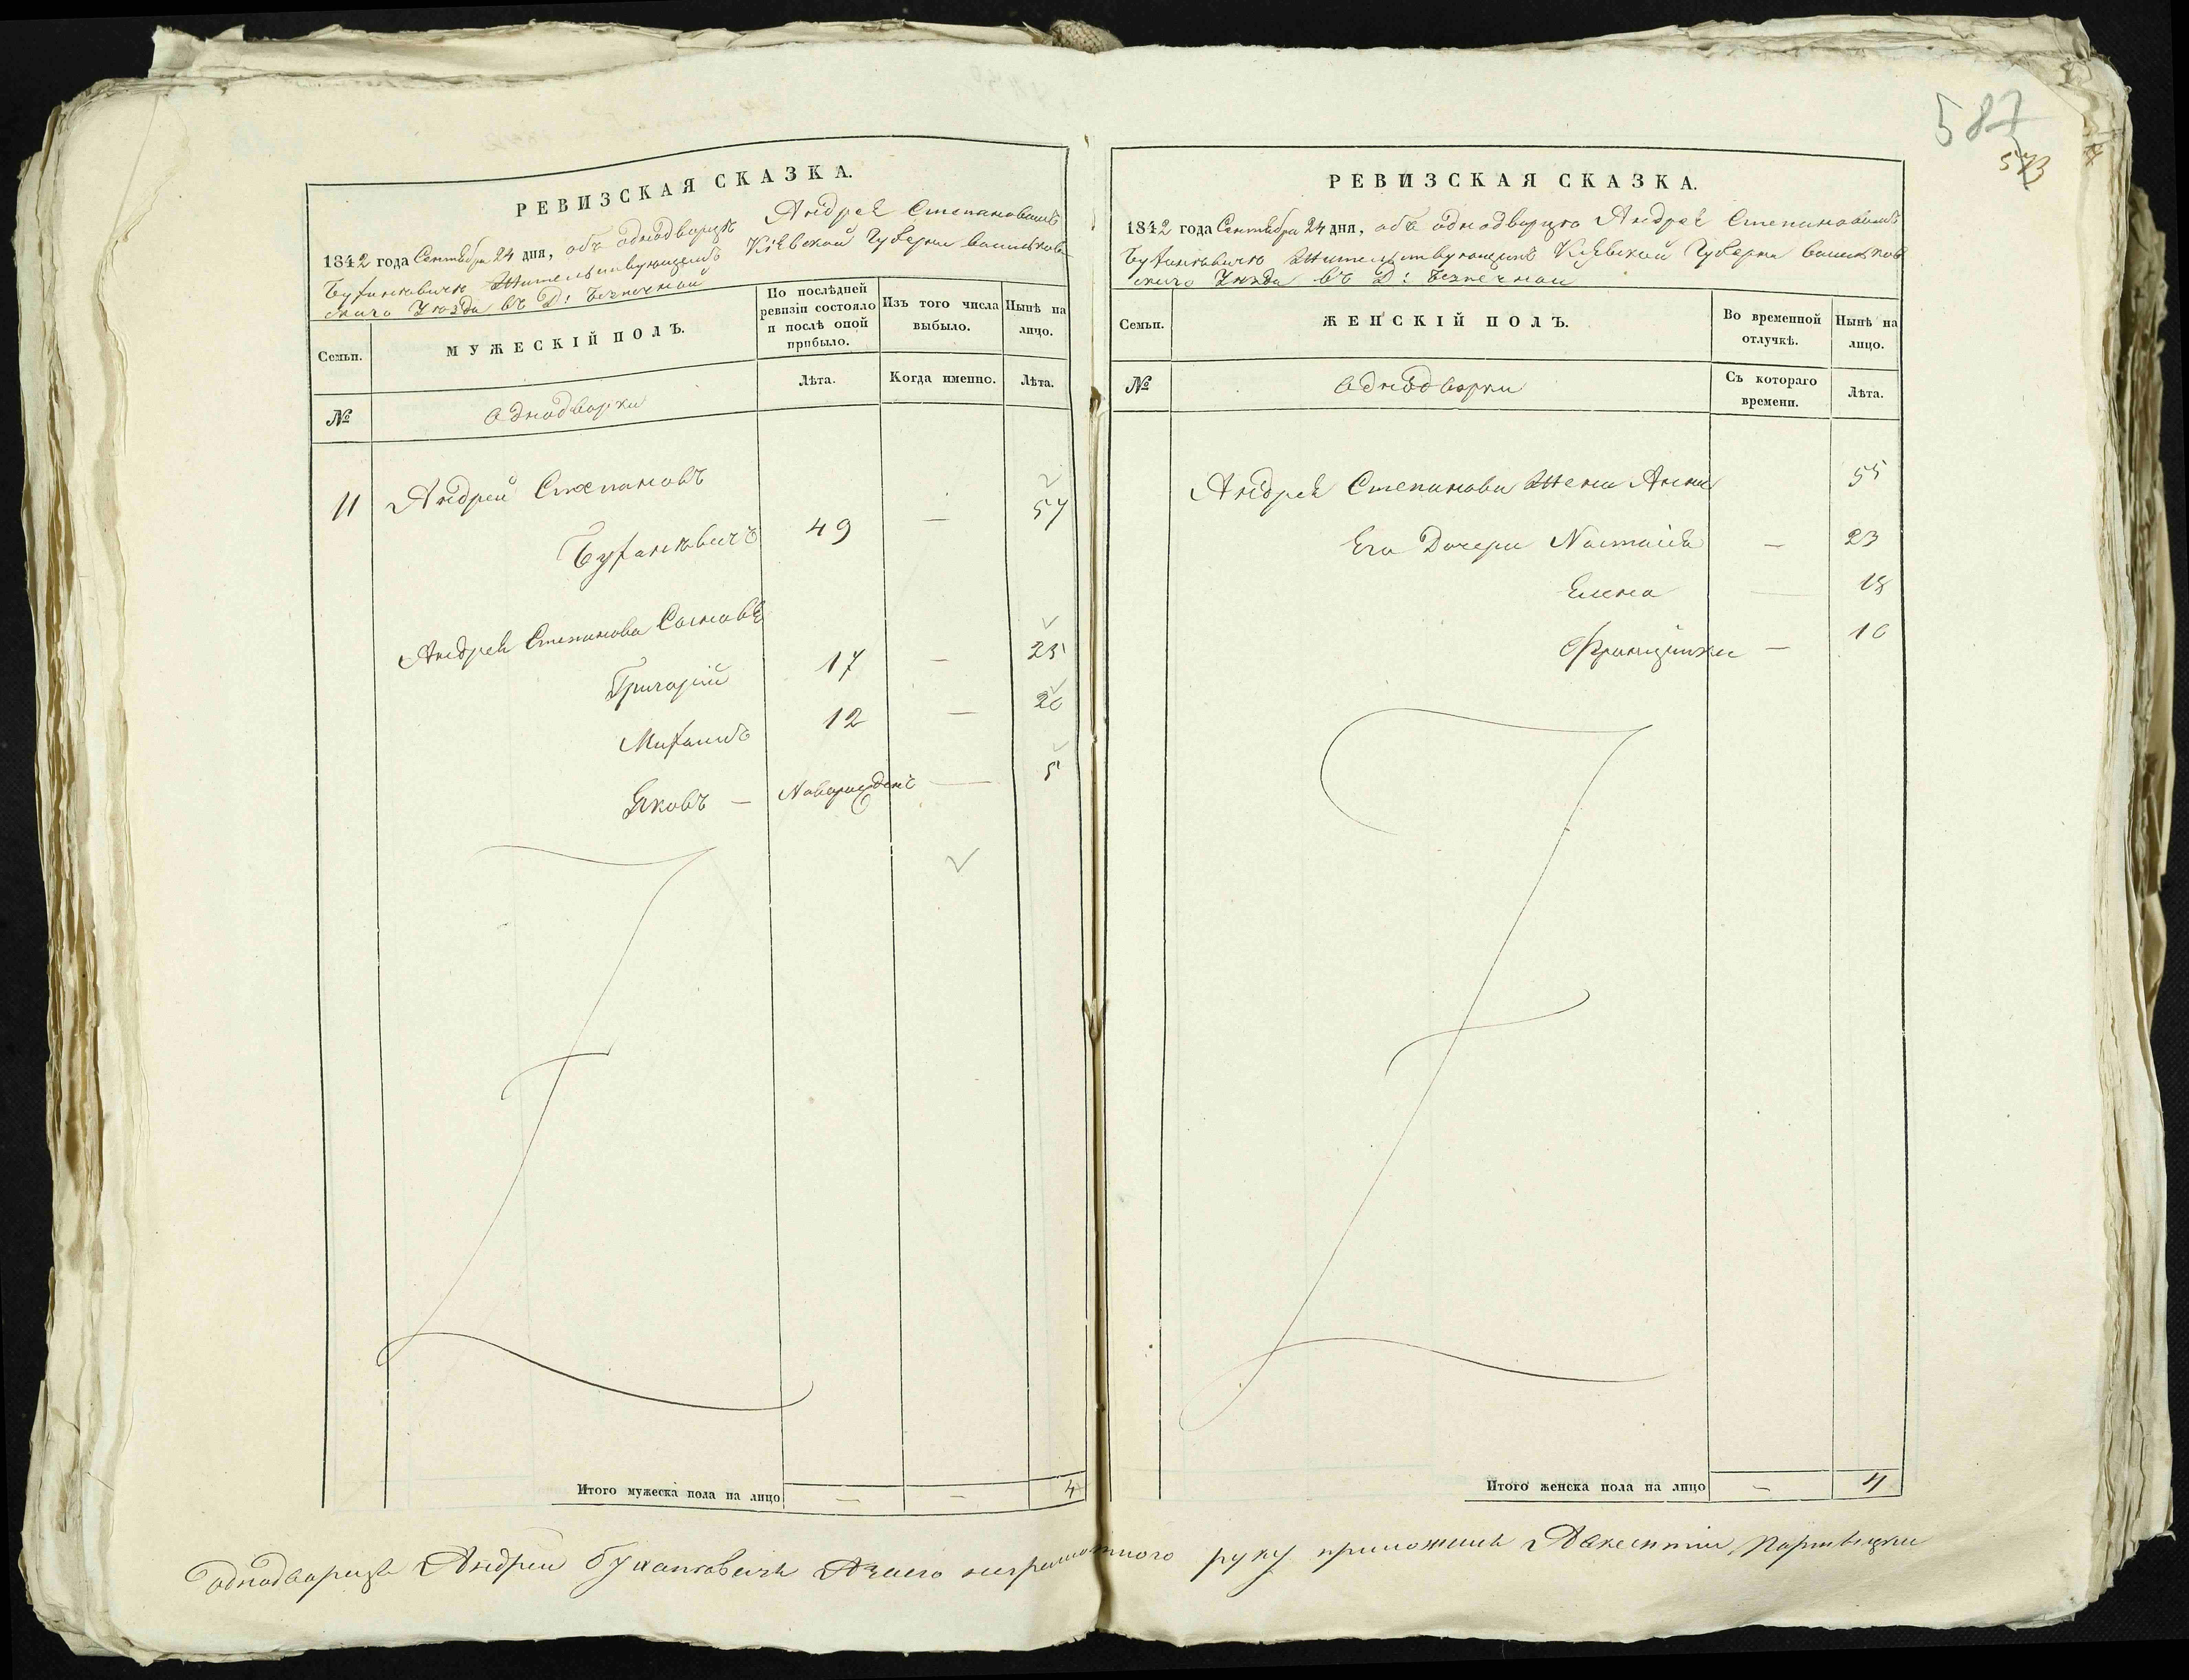 587
573
РЕВИЗСКАЯ СКАЗКА.
1842 года Сентября 24 дня, объ однодворцѣ Андреѣ Степановѣ
Буханѣвичѣ Жительствующемъ Кіевской Губерни Васильков
скаго Уѣзда въ Д: Безпечной
Семьи.
МУЖЕСКІЙ ПОЛЪ.
По послѣдней ревизіи состояло и послѣ оной прибыло.
Изъ того числа выбыло.
Нынѣ на лицо.
Лѣта.
Когда именно.
Лѣта.
№
Однодворки
11 Андрей Степановъ
Буханѣвичъ 49 — 57
Андрея Степанова Сыновья
Григорій 17 — 25
Михаилъ 12 — 20
Яковъ — Новорожденъ — 5
Итого мужеска пола на лицо — — 4
РЕВИЗСКАЯ СКАЗКА.
1842 года Сентября 24 дня, объ однодворцѣ Андреѣ Степановѣ
Буханѣвичѣ Жительствующемъ Кіевской Губерни Васильков
скаго Уѣзда въ Д: Безпечной
Семьи.
ЖЕНСКІЙ ПОЛЪ.
Во временной отлучкѣ.
Нынѣ на лицо.
№
Однодворки
Съ котораго времени.
Лѣта.
Андрея Степанова Жена Анна 55
Его Дочери Настасія — 23
Елена — 18
Францишка — 10
Итого женска пола на лицо — 4
однодворецъ Андрей Буханкевичъ А занего неграмотного руку приложилъ